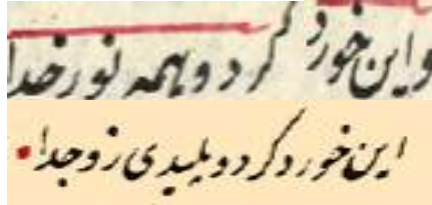 واین خورد گردد همه نور خدا
این خورد گردد پلیدی زو جدا